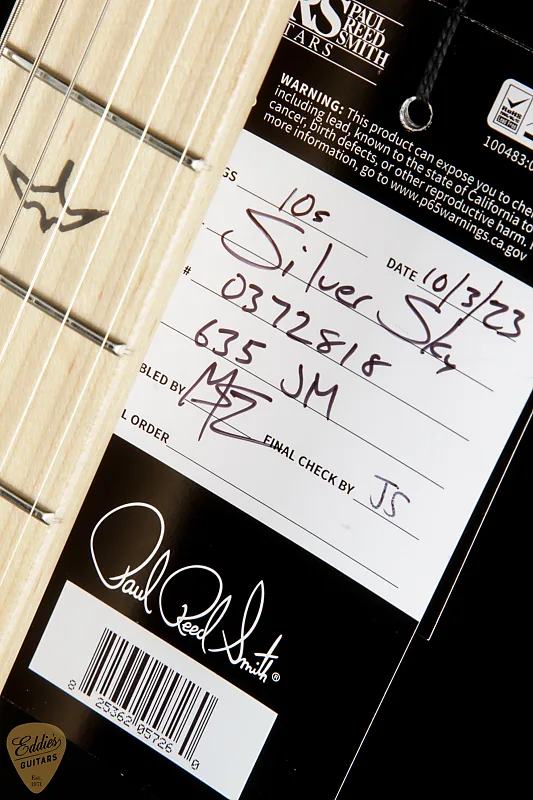 RS PAUL
REED
SMITH
TARS
WARNING: This product can expose you to che
including lead, known to the state of California to
cancer, birth defects, or other reproductive harm. F
more information, go to www.p65warnings.ca.gov
100483-0
GS 10s DATE 10/3/23
Silver Sky
# 0372818
635 JM
BLED BY MSZ FINAL CHECK BY JS
L ORDER
Paul Reed Smith®
8 25362 05726 0
Eddie's
GUITARS
Est.
1971